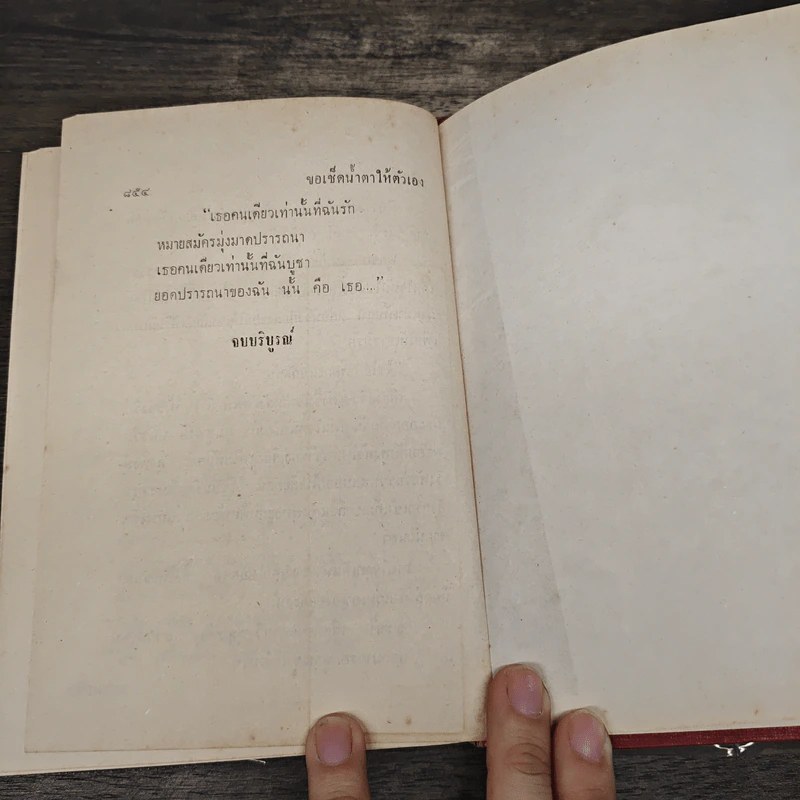 ๘๕๔
ขอเช็ดน้ำตาให้ตัวเอง
“เธอคนเดียวเท่านั้นที่ฉันรัก
หมายสมัครมุ่งมาดปรารถนา
เธอคนเดียวเท่านั้นที่ฉันบูชา
ยอดปรารถนาของฉัน นั้น คือ เธอ...”
จบบริบูรณ์